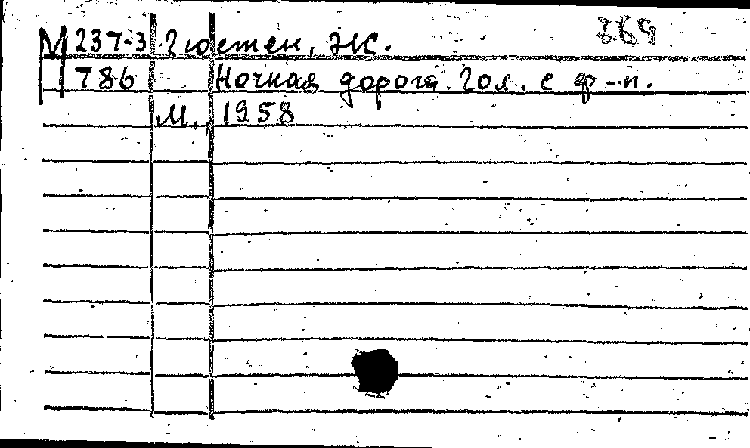 М 237-3 Гюстен, Ж.
786 Ночная дорога. Гол. с ф-п.
М., 1958